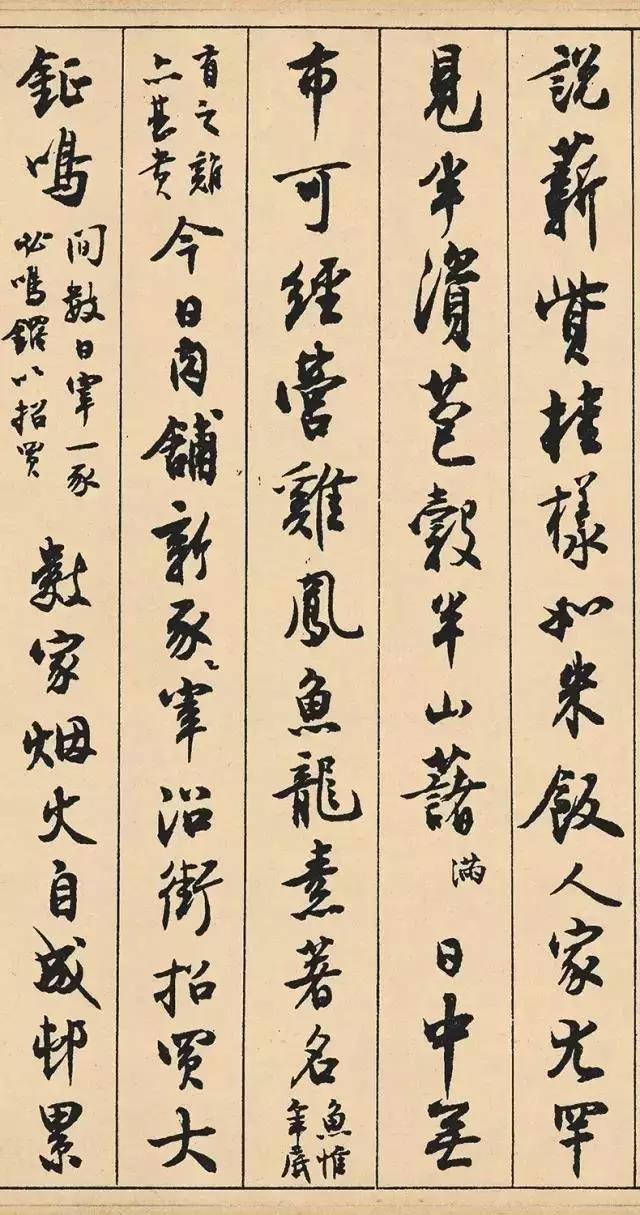 說薪貲桂樣如米飯人家尤罕
見半資苞穀半山藷滿 日中無
布可經營雞鳳魚龍素著名魚惟年底
有之雞亦甚貴今日肉舖新豕宰沿街招買大
鉦鳴間數日宰一豕必鳴鑼以招買 數家烟火自成邨累